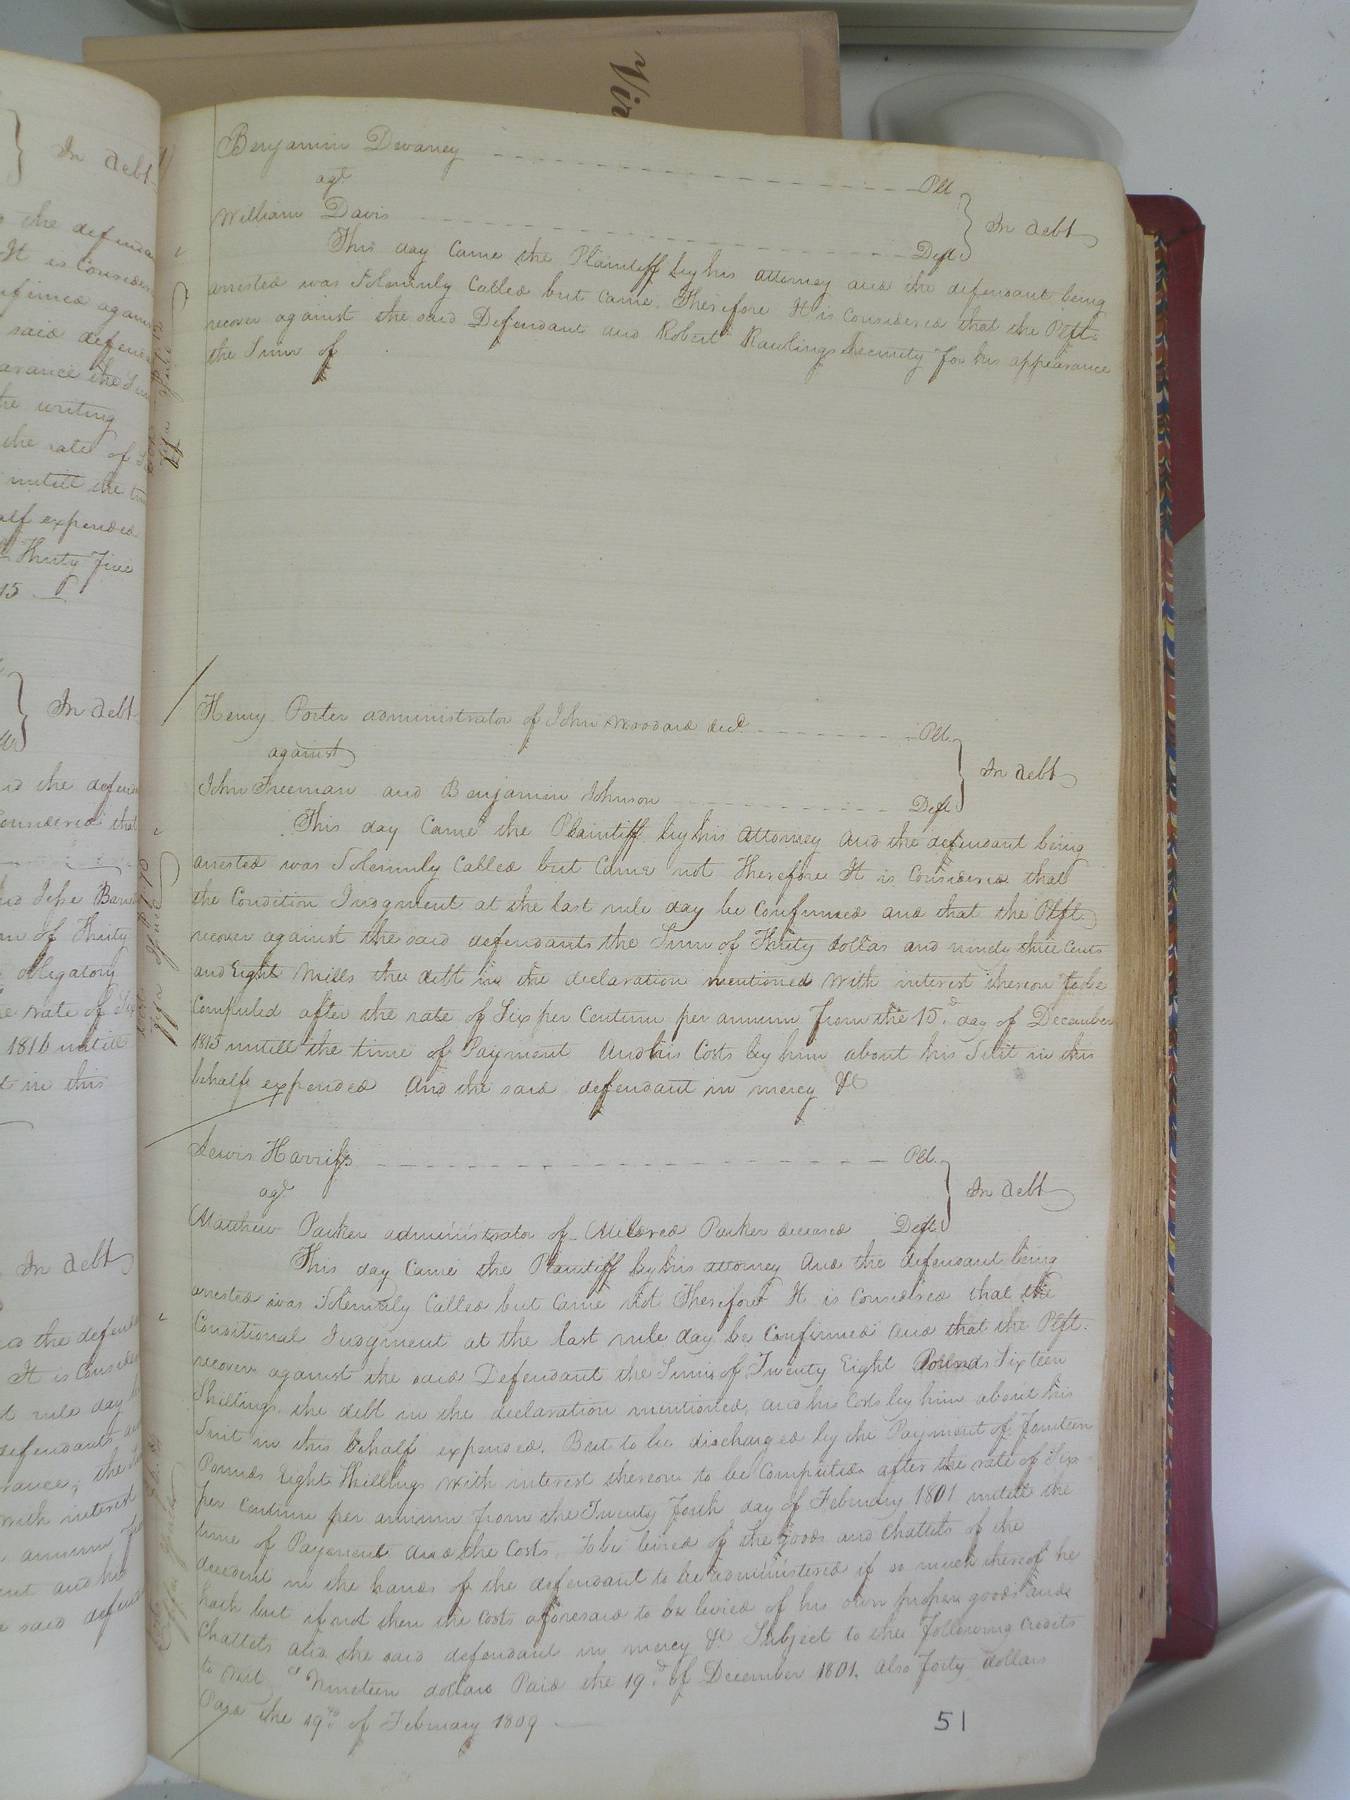 Vir
In debt
the defenda
It is Consider
said defen
arance the Sum
the writing
the rate of
untill the
alf expended
Thirty Five
15
In debt
and the defen
Considered that
of Thirty
obligatory
rate of Six
1816 untill
in this
In debt
the defend
It is Consider
rule day
defendants
with interest
annum
and his
said defend
Benjamin Devaney Plt
agt
William Davis Deft In debt
This day Came the Plaintiff by his attorney and the defendant being
arrested was Solemnly Called but Came. Therefore It is Considered that the Pltft.
recover against the said Defendant and Robert Rawlings Security for his appearance
the Sum of
Henry Porter administrator of John Woodard decd Plt.
against
John Freeman and Benjamin Johnson Deft In debt
This day Came the Plaintiff by his Attorney And the defendant being
arrested was Solemnly Called but Came not Therefore It is Considered that
the Condition Judgment at the last rule day be Confirmed and that the Pltft.
recover against the said defendants the Sum of Thirty dollas and ninety three Cents
and Eight Mills the debt in the declaration mentioned with interest thereon to be
Computed after the rate of Six per Centum per annum from the 15.d day of December
1815 untill the time of Payment And his Costs by him about his Suit in this
behalf expended And the said defendant in mercy &c
Lewis Harriss Plt.
agt
Matthew Parker administrator of Mildred Parker deceased Deft In debt
This day Came the Plaintiff by his attorney And the defendant being
arrested was Solemnly Called but Came not Therefore It is Considered that the
Conditional Judgment at the last rule day be Confirmed And that the Pltft.
recover against the said Defendant the Sum of Twenty Eight Pounds Sixteen
Shillings the debt in the declaration mentioned, and his Costs by him about his
Suit in this behalf expended. But to be discharged by the Payment of Fourteen
Pounds Eight Shillings with interest thereon to be Computed after the rate of Six
per Centum per annum from the Twenty Fourth day of February 1801 untill the
time of Payment And the Costs, To be levied of the goods and Chattels of the
decedent in the hands of the defendant to be administered if so much thereof he
hath but if not then the Costs aforesaid to be levied of his own proper goods and
Chattels and the said defendant in mercy &c Subject to the Following Credits
to wit Nineteen dollars Paid the 19.d of December 1801. Also forty dollars
Paid the 19th of February 1809
51